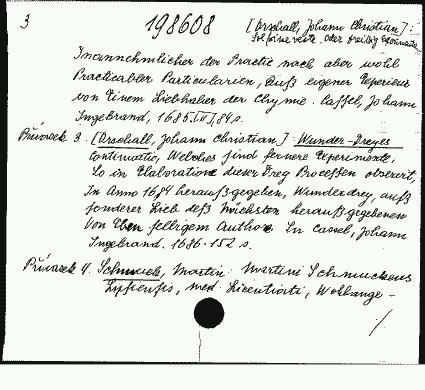 3 198608 [Arschall, Johann Christian]:
oder
Imannehmlicher der Practic nach aber wohl
Practicabler Particularien, Auß eigener Experienz
von Einem Liebhaber der Chymie. Cassel, Johann
Ingebrand, 1685. 84 s.
Přívazek 3. [Arschall, Johann Christian]: Wunder-Dreyes
Continuatio, Welches sind fernere Experimente,
So in Elaboration dieser Dreg Processen observirt,
In Anno 1684 herauß gegeben, Wunderdrey, auß
sonderer Lieb deß Nächsten herauß gegebenen
Von Eben selbigem Authore. In Cassel, Johann
Ingebrand. 1686. 152 s.
Přívazek 4. Schmuck, Martin: Martini Schmuckens
Lipsiensis, med. Licentiati, Wolange-
/